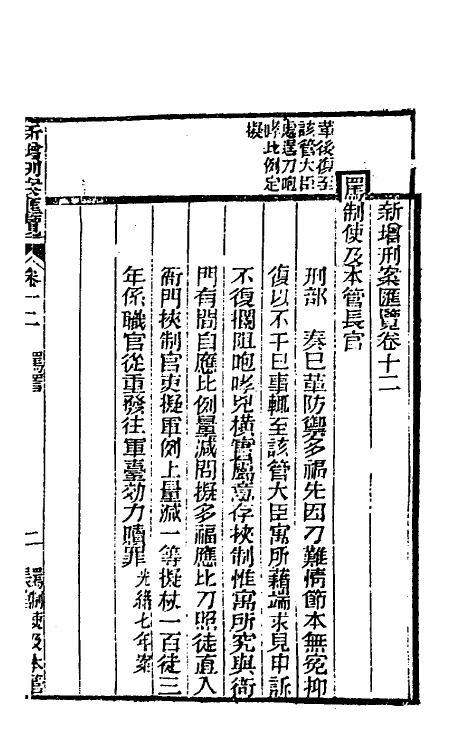 新增刑案匯覽卷十二
罵制使及本管長官
革後復至
該管大臣
處逞刀咆
哮比例定
擬
刑部　奏已革防禦多福先因刀難情節本無寃抑
復以不干已事輒至該管大臣寓所藉端求見申訴
不復攔阻咆哮兇橫實屬意存挾制惟寓所究與衙
門有間自應比例量減問擬多福應比刀照徒直入
衙門挾制官吏擬軍例上量減一等擬杖一百徒三
年係職官從重發往軍臺効力贖罪光緒七年案
新增刑案匯覽
卷十二
罵詈
二
罵制使及本管